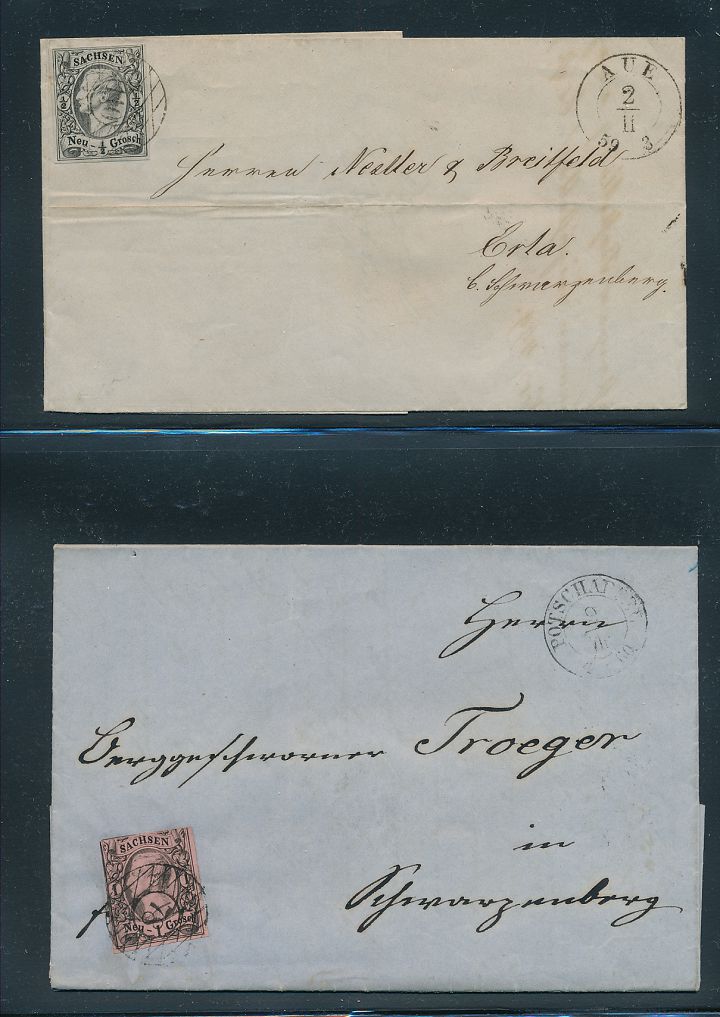 SACHSEN
½ ½
Neu - ½ Grosch
AUE
2
II
59 3
Herren Nestler & Breitfeld
Erla.
b. Schwarzenberg.
Herrn
Berggeschworner Troeger
in
Schwarzenberg
SACHSEN
1
Neu - 1 Grosch